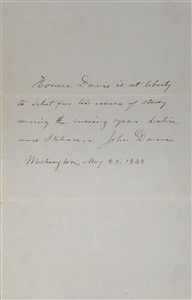 Horace Davis is at liberty
to select for his course of study
during the ensuing year Latin
and John Davis
Washington, May 22. 1848